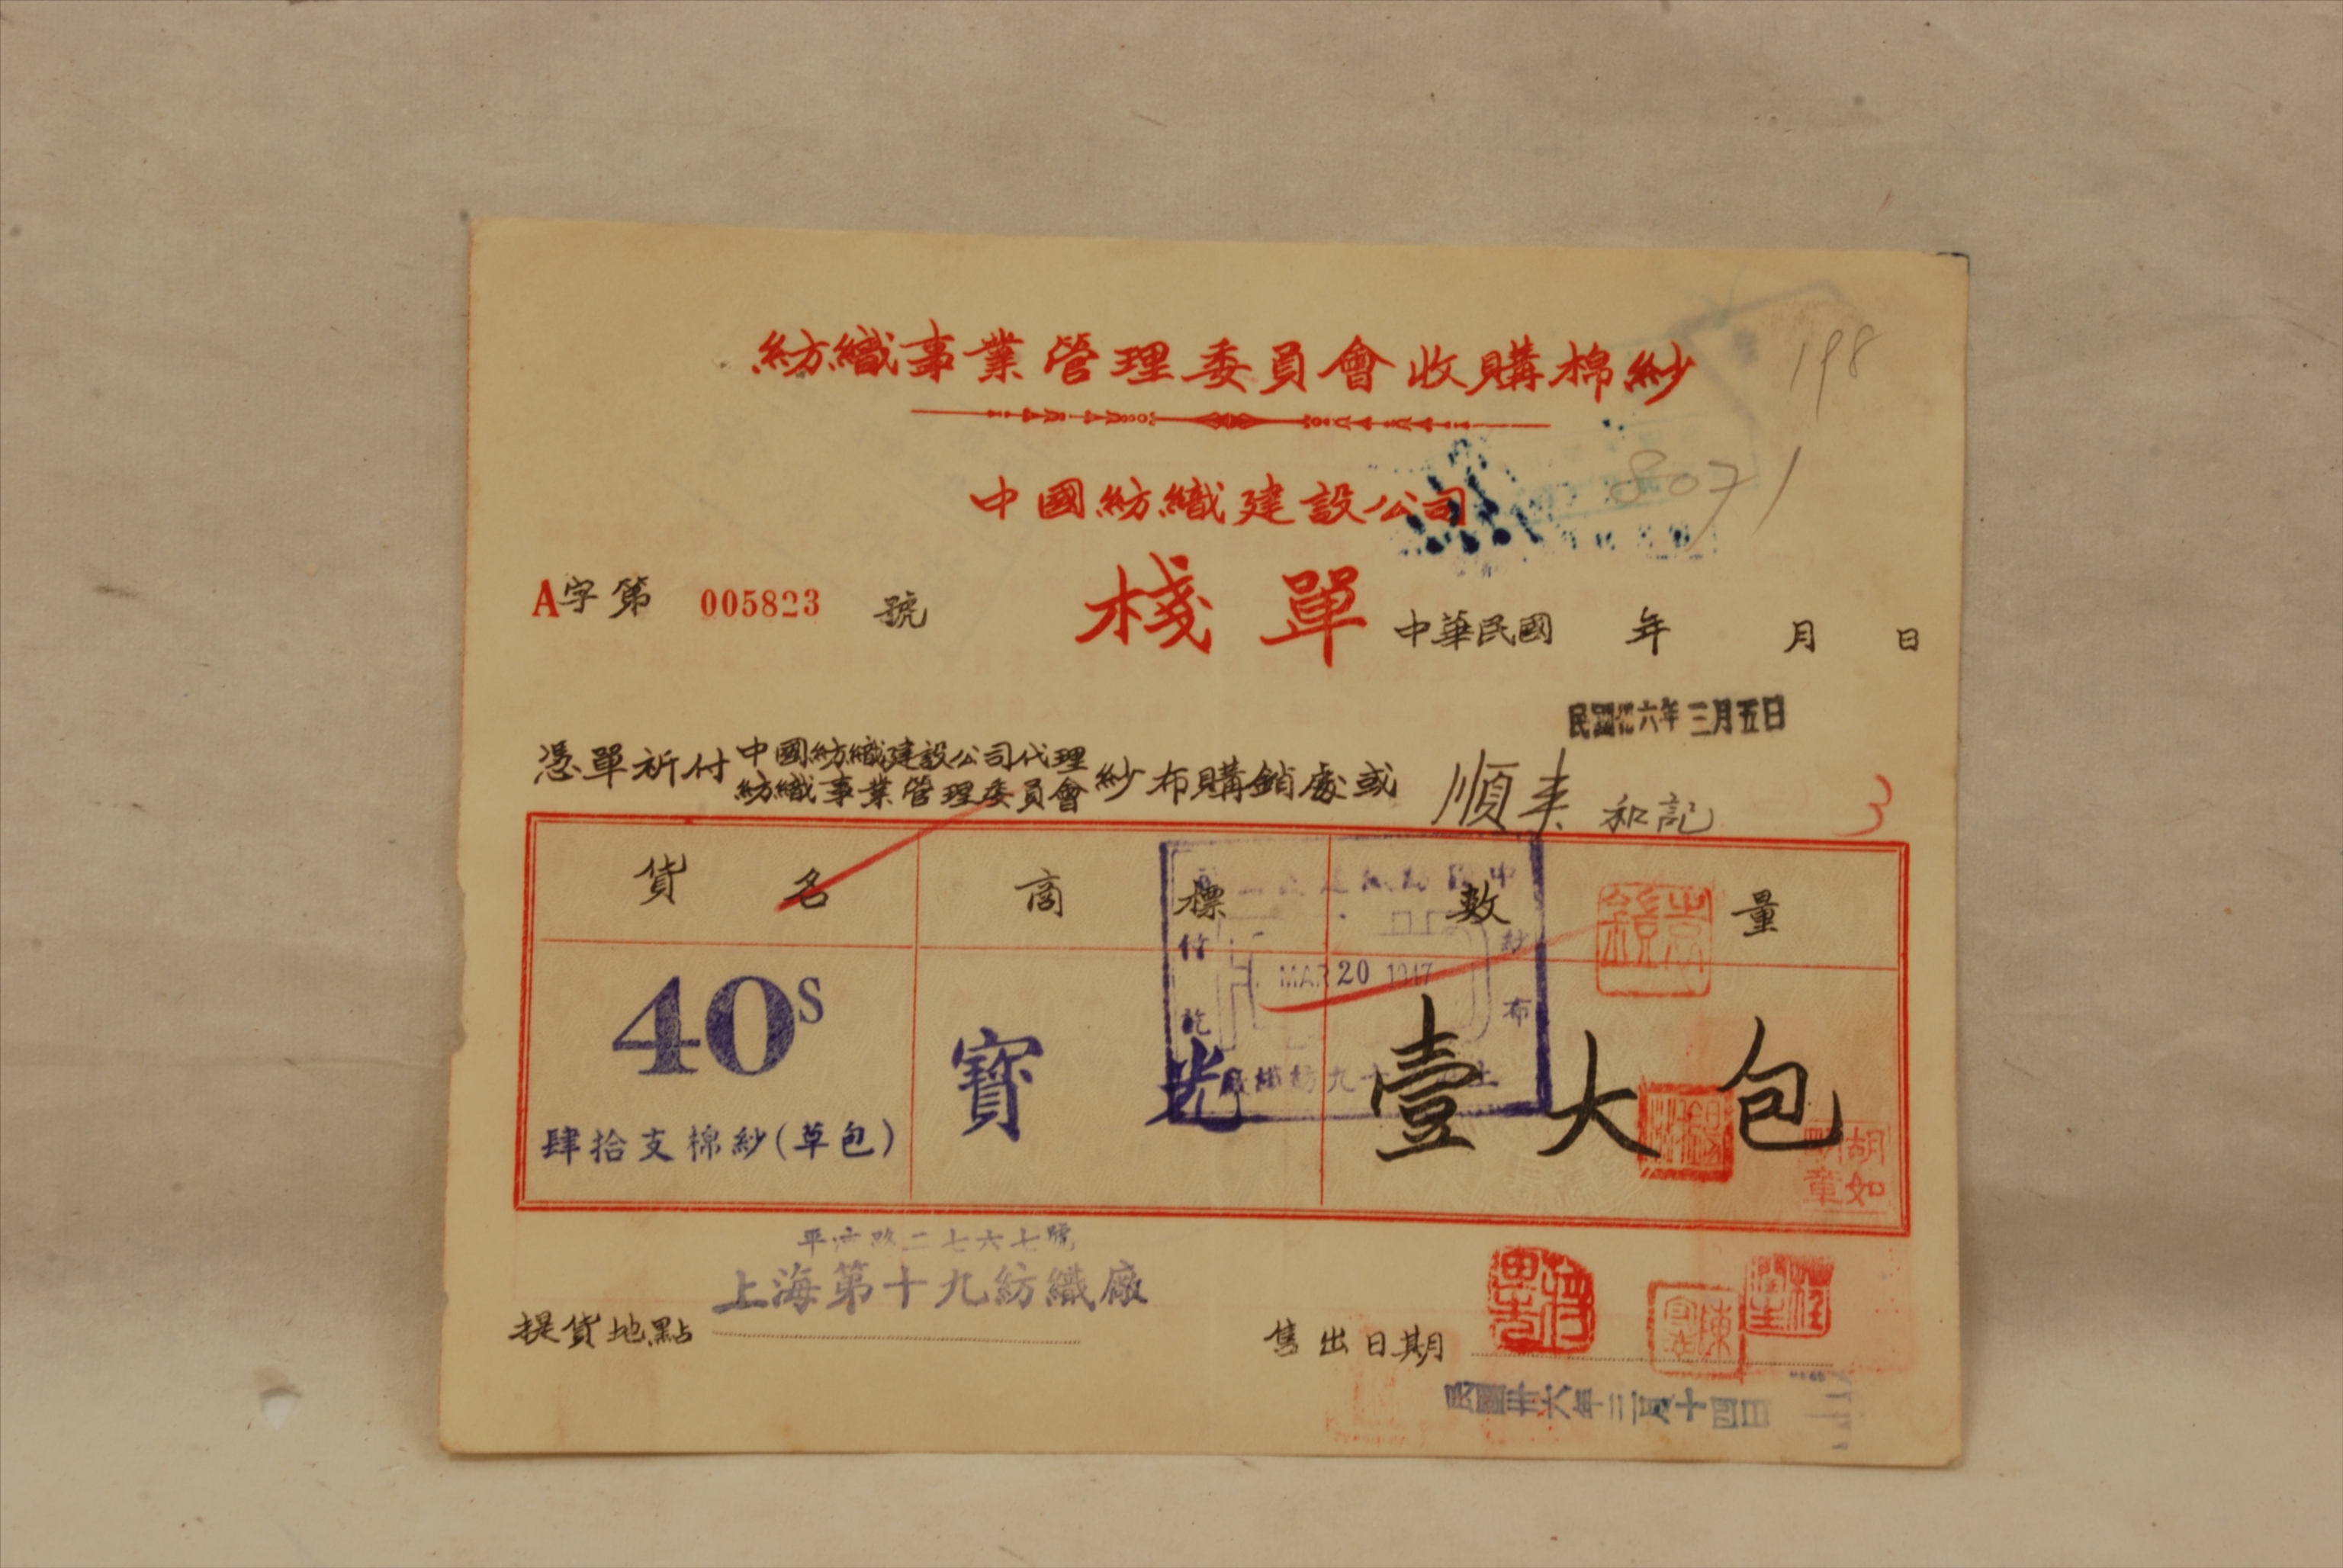 紡織事業管理委員會收購棉紗
198
中國紡織建設公司
8071
A字第 005823 號
棧單
中華民國 年 月 日
民國卅六年三月五日
憑單祈付
中國紡織建設公司代理
紡織事業管理委員會
紗布購銷處或
順來 和記
3
貨名 商標 數量
40S
肆拾支棉紗(草包)
寶光
壹大包
付訖
紗布
MAR 20 1947
胡如
章
平涼路二七六七號
上海第十九紡織廠
提貨地點
售出日期
民國卅六年三月十四日